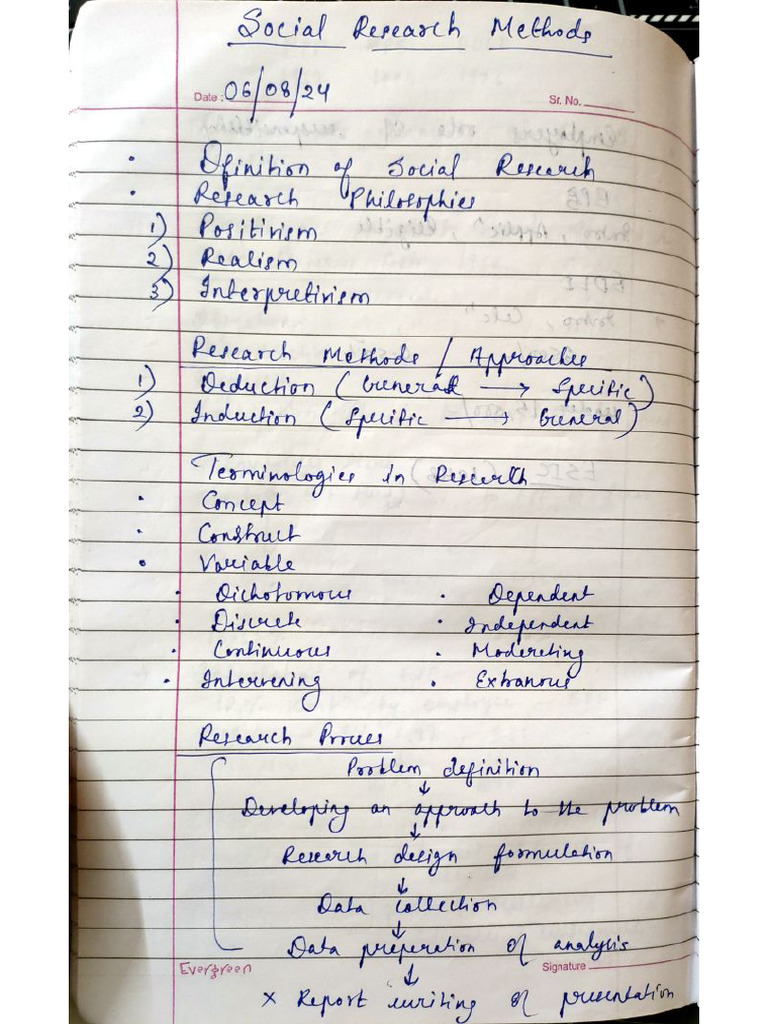 Social Research Methods
Date : 06/08/24 Sr. No.
• Definition of Social Research
• Research Philosophies
1) Positivism
2) Realism
3) Interpretivism
Research Methods / Approaches
1) Deduction ( General → Specific )
2) Induction ( Specific → General )
Terminologies in Research
• Concept
• Construct
• Variable
• Dichotomous • Dependent
• Discrete • Independent
• Continuous • Modereting
• Intervening • Extranous
Research Process
Problem definition
↓
Developing an approach to the problem
↓
Research design formulation
↓
Data collection
↓
Data preperation of analysis
Evergreen Signature
↓
x Report writing of presentation